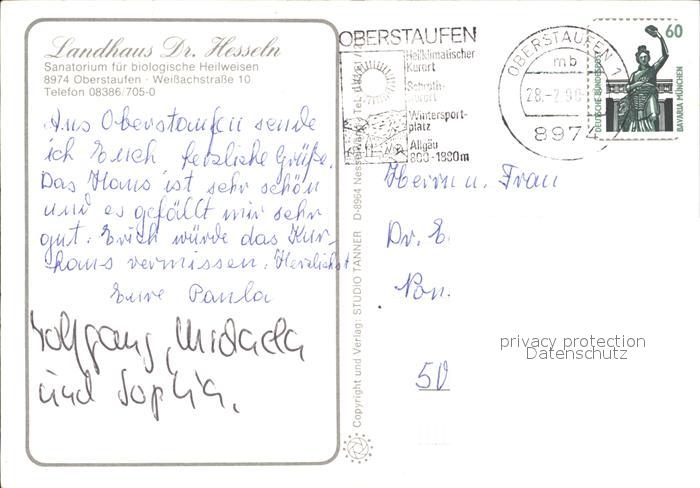 Landhaus Dr. Hesseln
Sanatorium für biologische Heilweisen
8974 Oberstaufen · Weißachstraße 10
Telefon 08386/705-0
Aus Oberstaufen sende
ich Euch herzliche Grüße.
Das Haus ist sehr schön
und es gefällt mir sehr
gut. Erich würde das Kur-
haus vermissen. Herzlichst
Eure Paula
Wolfgang, Michaela
und Sophia.
Copyright und Verlag: STUDIO TANNER D-8964 Nesselwang Tel.
OBERSTAUFEN
Heilklimatischer
Kurort
Schroth-
kurort
Wintersport-
platz
Allgäu
800-1880m
OBERSTAUFEN 1
mb
28.-2.90
8974
60
DEUTSCHE BUNDESPOST
BAVARIA MÜNCHEN
Herrn u. Frau
Dr. E.
50
privacy protection
Datenschutz